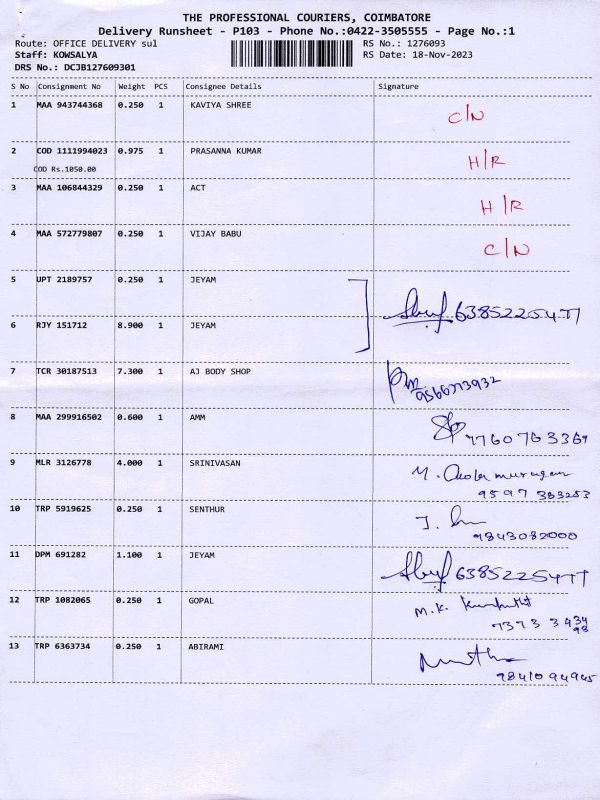 THE PROFESSIONAL COURIERS, COIMBATORE
Delivery Runsheet - P103 - Phone No.:0422-3505555 - Page No.:1
Route: OFFICE DELIVERY sul RS No.: 1276093
Staff: KOWSALYA RS Date: 18-Nov-2023
DRS No.: DCJB127609301
S No Consignment No Weight PCS Consignee Details Signature
1 MAA 943744368 0.250 1 KAVIYA SHREE C/N
2 COD 1111994023 0.975 1 PRASANNA KUMAR H/R
COD Rs.1050.00
3 MAA 106844329 0.250 1 ACT H/R
4 MAA 572779807 0.250 1 VIJAY BABU C/N
5 UPT 2189757 0.250 1 JEYAM
6385225477
6 RJY 151712 8.900 1 JEYAM
7 TCR 30187513 7.300 1 AJ BODY SHOP
8 MAA 299916502 0.600 1 AMM
9 MLR 3126778 4.000 1 SRINIVASAN
9597 383253
10 TRP 5919625 0.250 1 SENTHUR
9843082000
11 DPM 691282 1.100 1 JEYAM 6385225477
12 TRP 1082065 0.250 1 GOPAL M.K.
13 TRP 6363734 0.250 1 ABIRAMI
9841094945